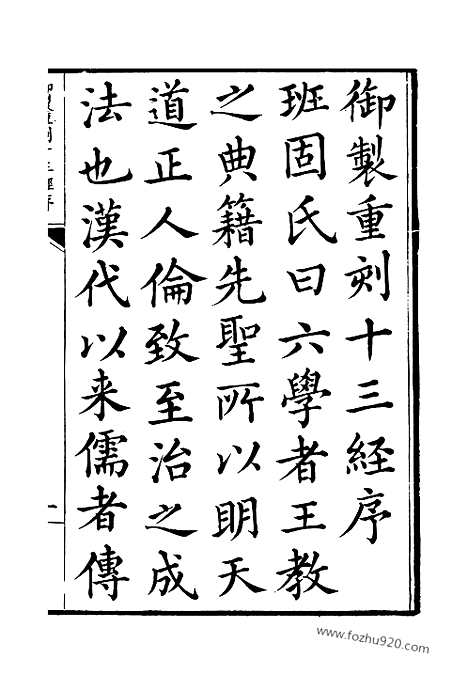 御製重刻十三經序
班固氏曰六學者王教
之典籍先聖所以明天
道正人倫致至治之成
法也漢代以来儒者傳
www.fozhu920.com